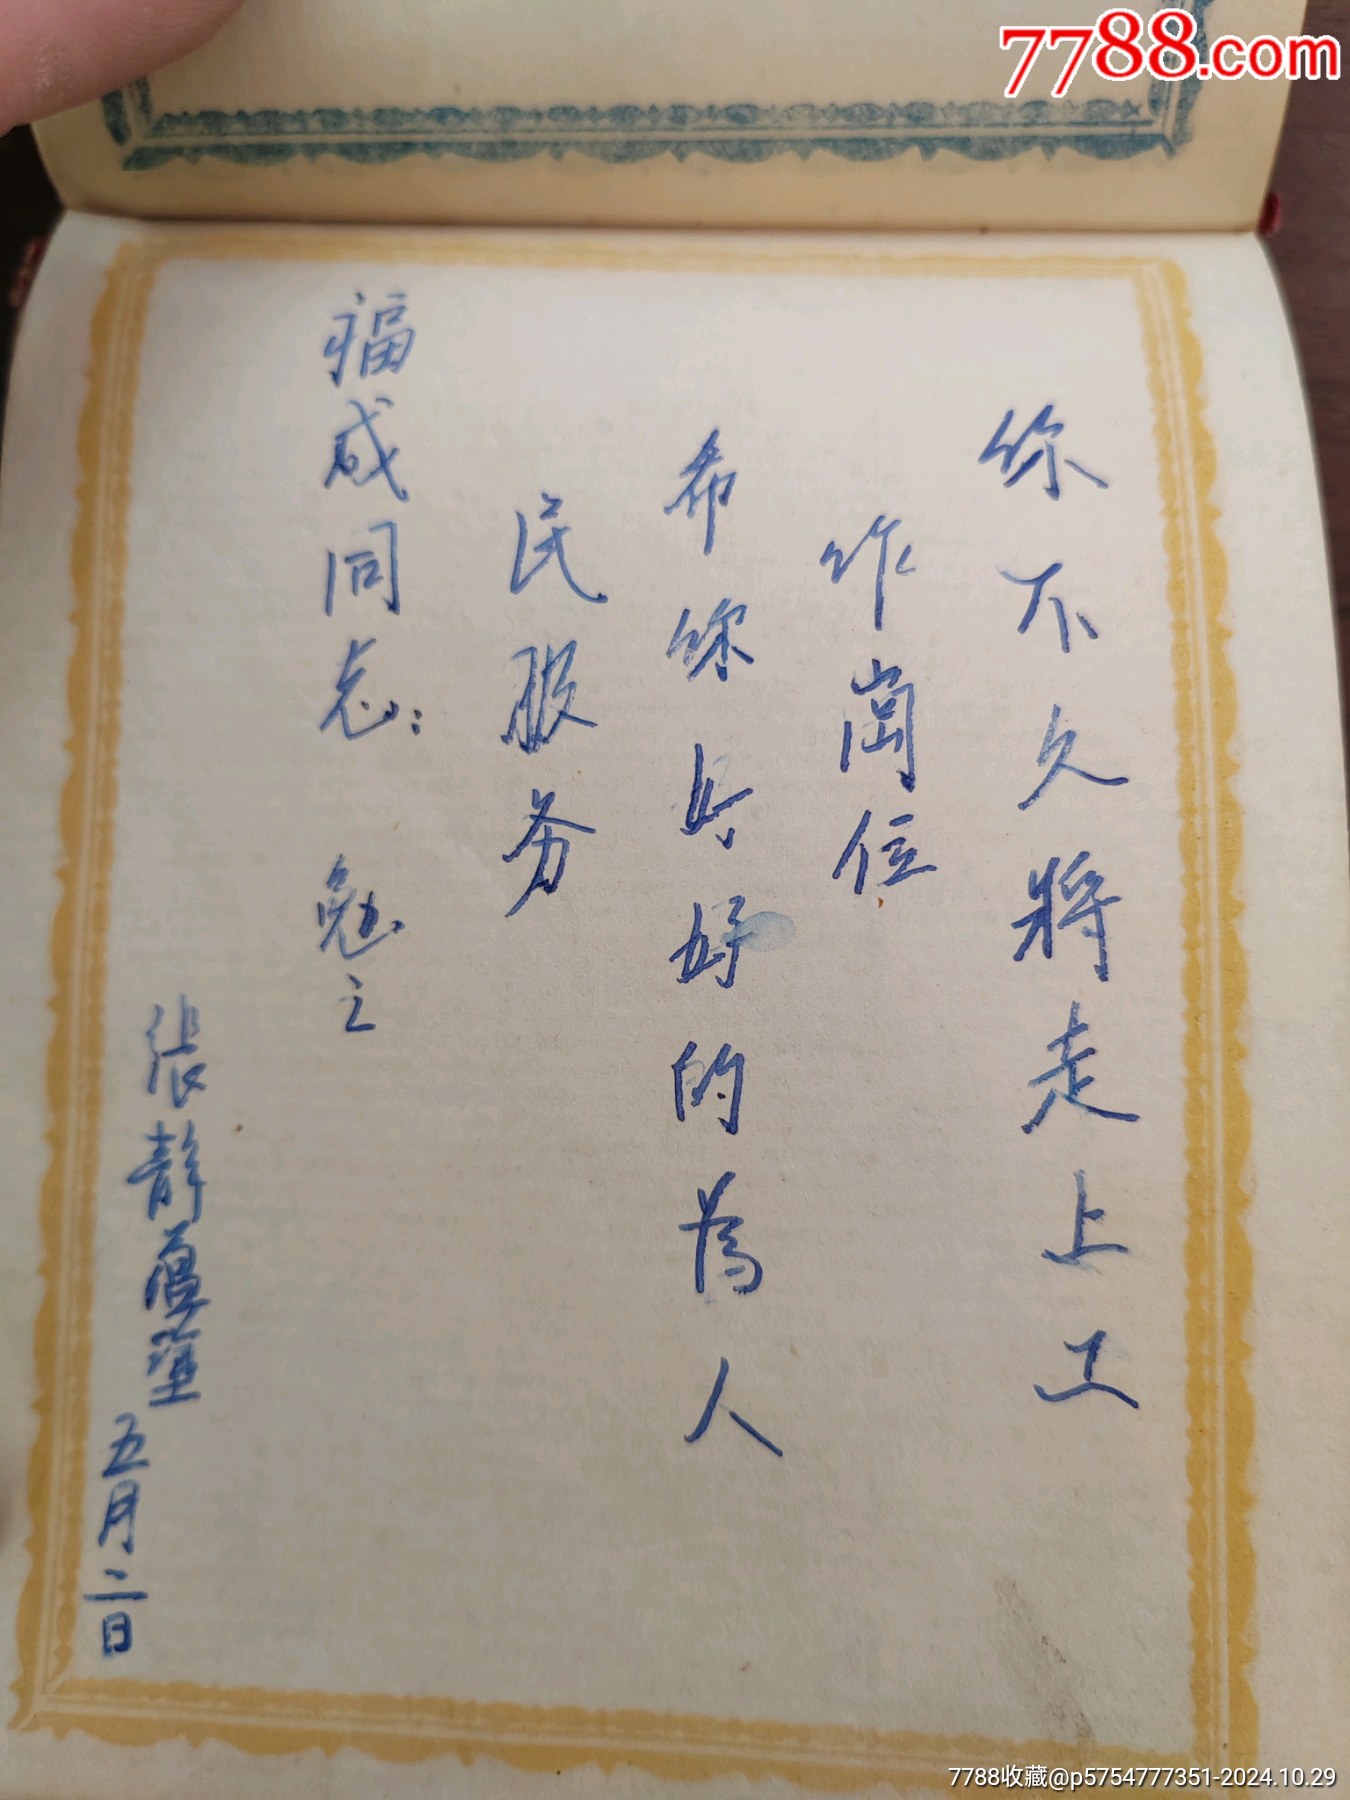 你不久將走上工
作崗位
希你好的為人
民服务
福咸同志：勉之
張静
五月二日
7788.com
7788收藏@p5754777351-2024.10.29